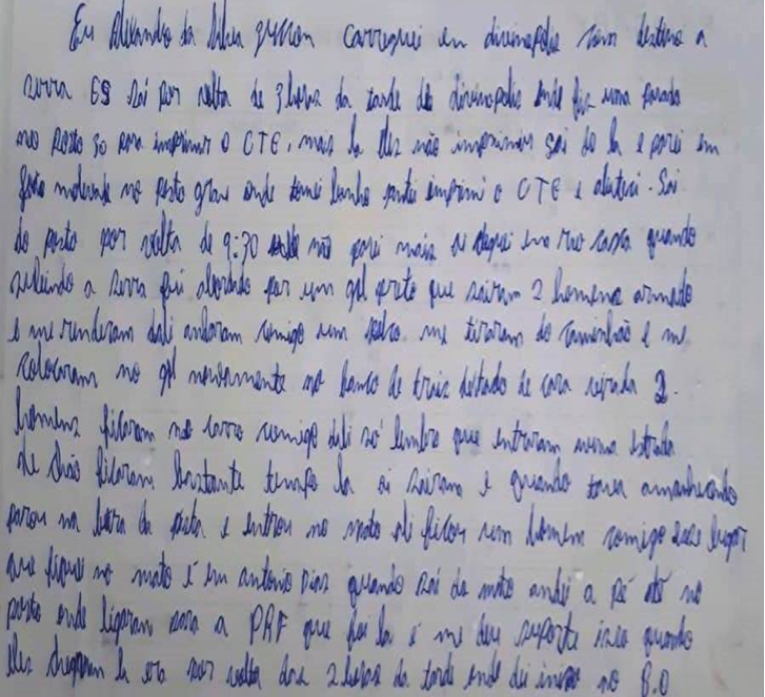 Eu Alexandro da Silva carreguei em divinopolis com destino a
serra ES Sai por volta de 3 horas da tarde de divinopolis onde fiz uma parada
no posto 30 para imprimir o CTE, mais la eles não imprimiram sai de la e parei em
João molevade no posto graal onde tomei banho jantei imprimi o CTE e abasteci. Sai
do posto por volta de 9:30 não parei mais ai cheguei em rio casca quando
subindo a serra fui abordado por um gol preto que sairam 2 homens armado
e me renderam dali andaram comigo um me tiraram do caminhão e me
colocaram no gol novamente no banco de trais deitado de cara virada 2
homens ficaram no carro comigo dali só lembro que entraram numa estrada
de chão ficaram bastante tempo la ai sairam e quando tava amanhecendo
parou na bera da pista e entrou no mato ali ficou um homem comigo esse lugar
que fiquei no mato é em antonio Dias quando sai do mato andei a pé até no
posto onde ligaram para a PRF que foi la e me deu suporte isso quando
eles chegaram la era por volta das 2 horas da tarde onde dei inicio no B.O